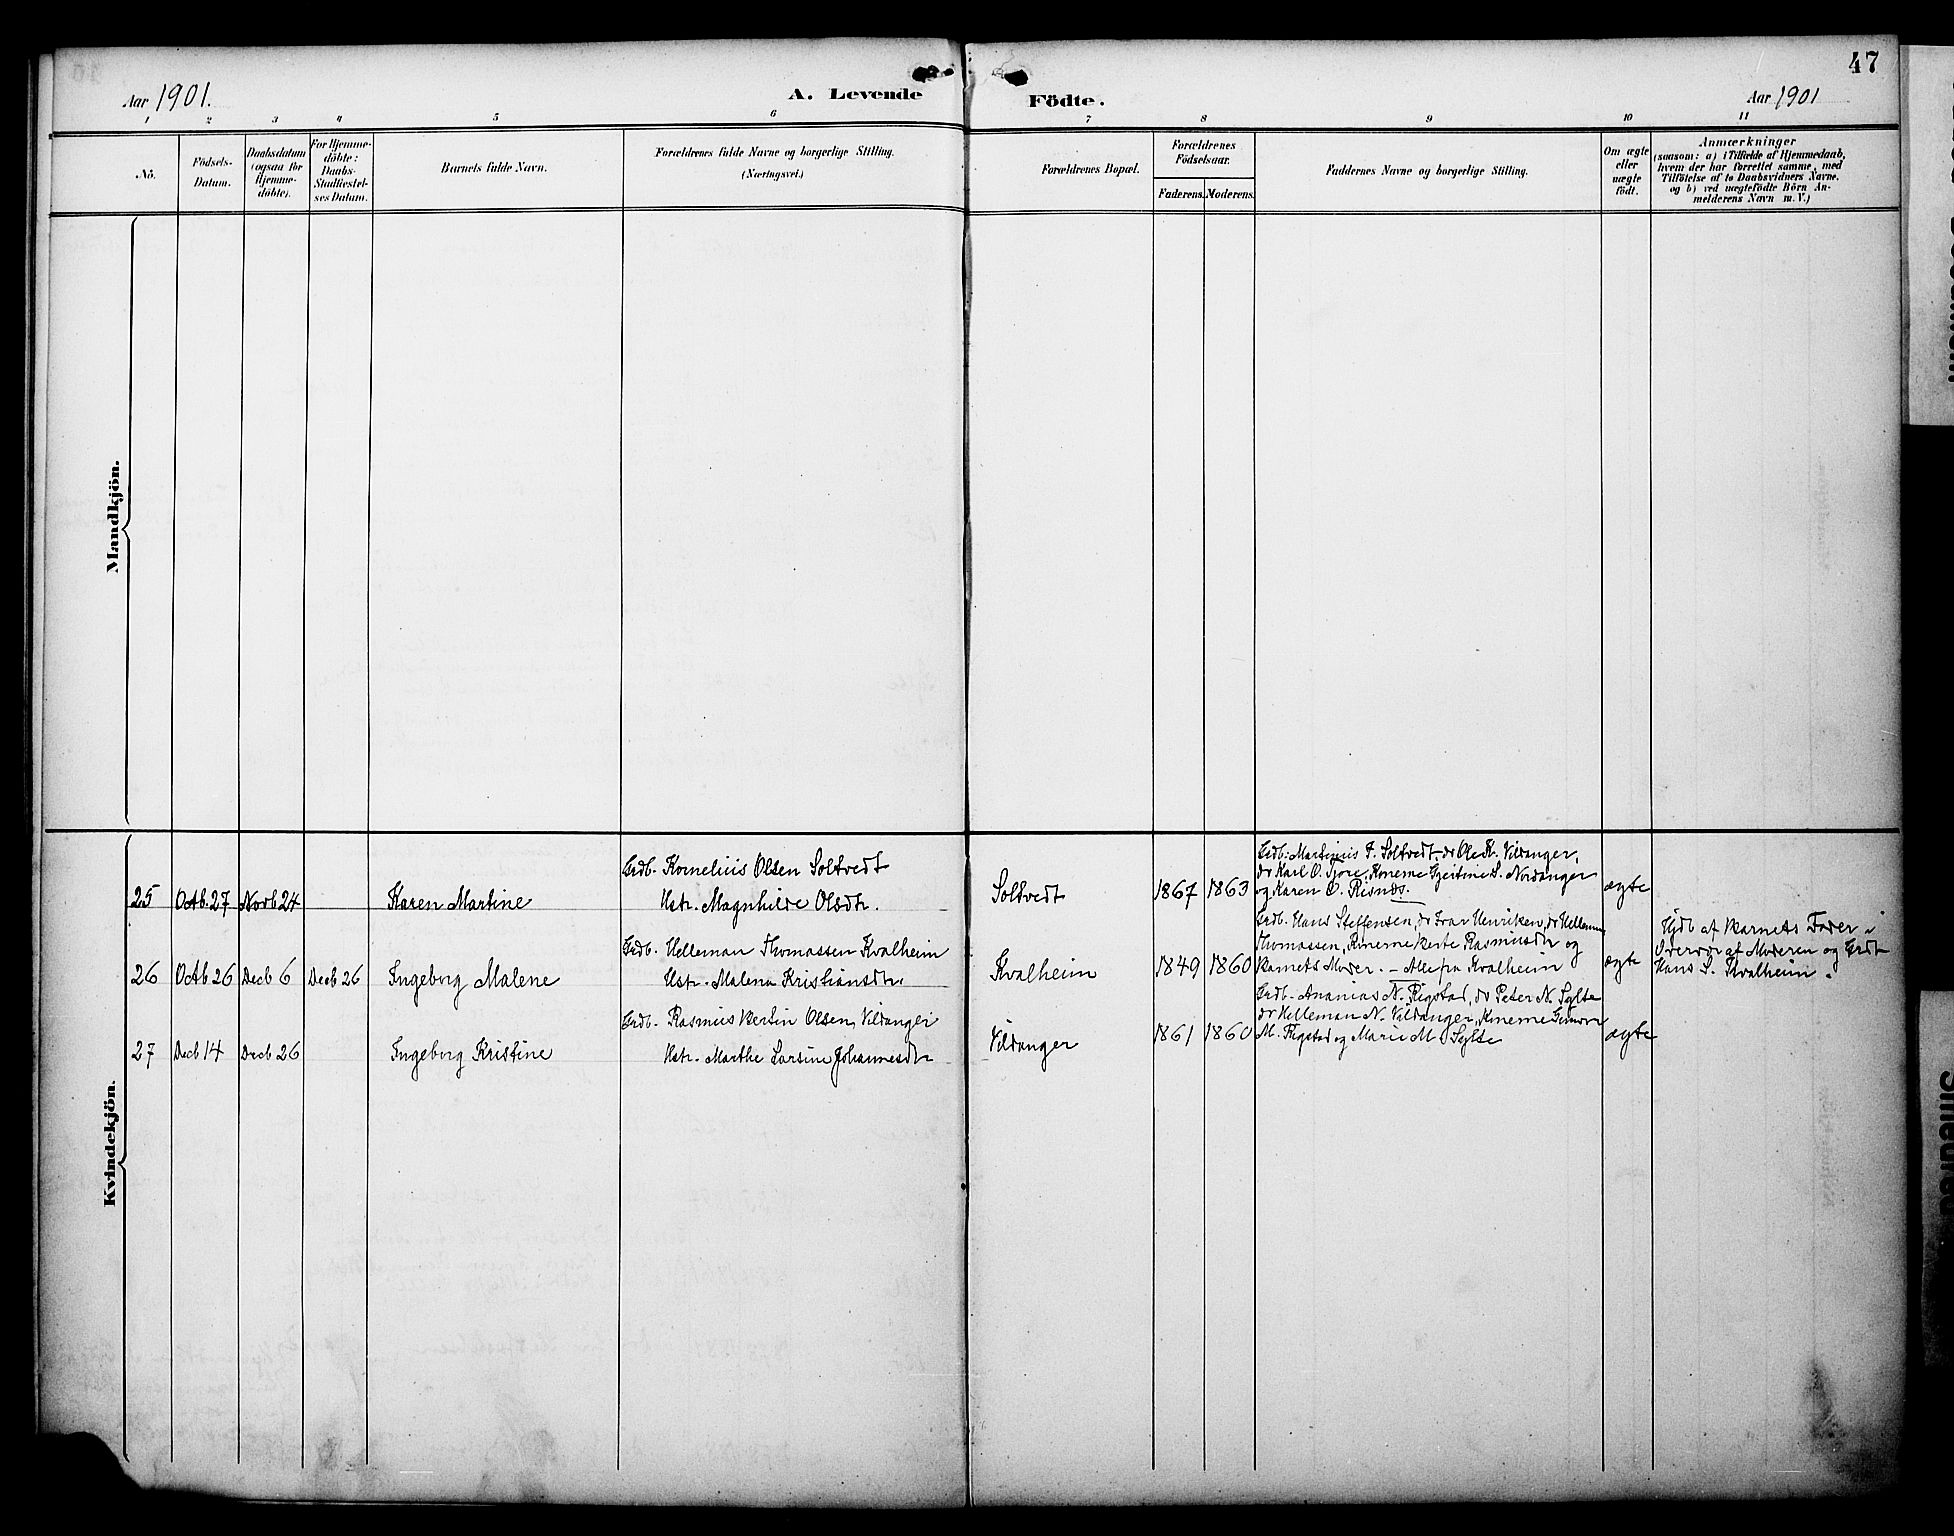 47
Aar 1901.
A. Levende Födte.
Aar 1901
1 2 3 4 5 6 7 8 9 10 11
Nö.
Födsels-
Datum.
Daabsdatum
(ogsaa for
Hjemme-
döbte).
For Hjemme-
döbte:
Daabs-
Stadfæstel-
ses Datum.
Barnets fulde Navn.
Forældrenes fulde Navne og borgerlige Stilling.
(Næringsvei.)
Forældrenes Bopæl.
Forældrenes
Födselsaar.
Faderens. Moderens.
Faddernes Navne og borgerlige Stilling.
Om ægte
eller
uægte
födt.
Anmærkninger
(saasom: a) i Tilfælde af Hjemmedaab,
hvem der har forrettet samme, med
Tilföielse af to Daabsvidners Navne,
og b) ved uægtefödte Börn An-
melderens Navn m. V.)
Mandkjön.
Kvindekjön.
25 Octb. 27 Novb 24
Karen Martine
Grdb. Kornelius Olsen Soltvedt
Hstr. Magnhilde Olsdtr.
Soltvedt
1867 1863
Grdb: Martinius T. Soltvedt, do Ole K. Vildanger,
do Karl O. Tjore, Konerne Gjertine S. Nordanger
og Karen O. Risnes.
ægte
26 Octb 26 Decb 6 Decb 26
Ingeborg Malene
Grdb. Helleman Thomassen Kvalheim
Hstr. Malena Kristiansdtr.
Kvalheim
1849 1860
Grdb. Hans Steffensen, do Ivar Henriken, do Helleman
Thomassen, Konerne Berte Rasmusdtr og
Barnets Moder. - Alle fra Kvalheim
ægte
Hjdb af Barnets Fader i
Overvær af Moderen og Grdb
Hans S. Kvalheim.
27 Decb 14 Decb 26
Ingeborg Kristine
Grdb. Rasmus Bertin Olsen, Vildanger
Hstr. Marthe Larsine Johannesdtr
Vildanger
1861 1860
Grdb. Ananias N. Rigstad, do Peter N. Sylte
do Helleman N. Vildanger, Konerne Gunvor
M. Rigstad og Marie M. Sylte
ægte